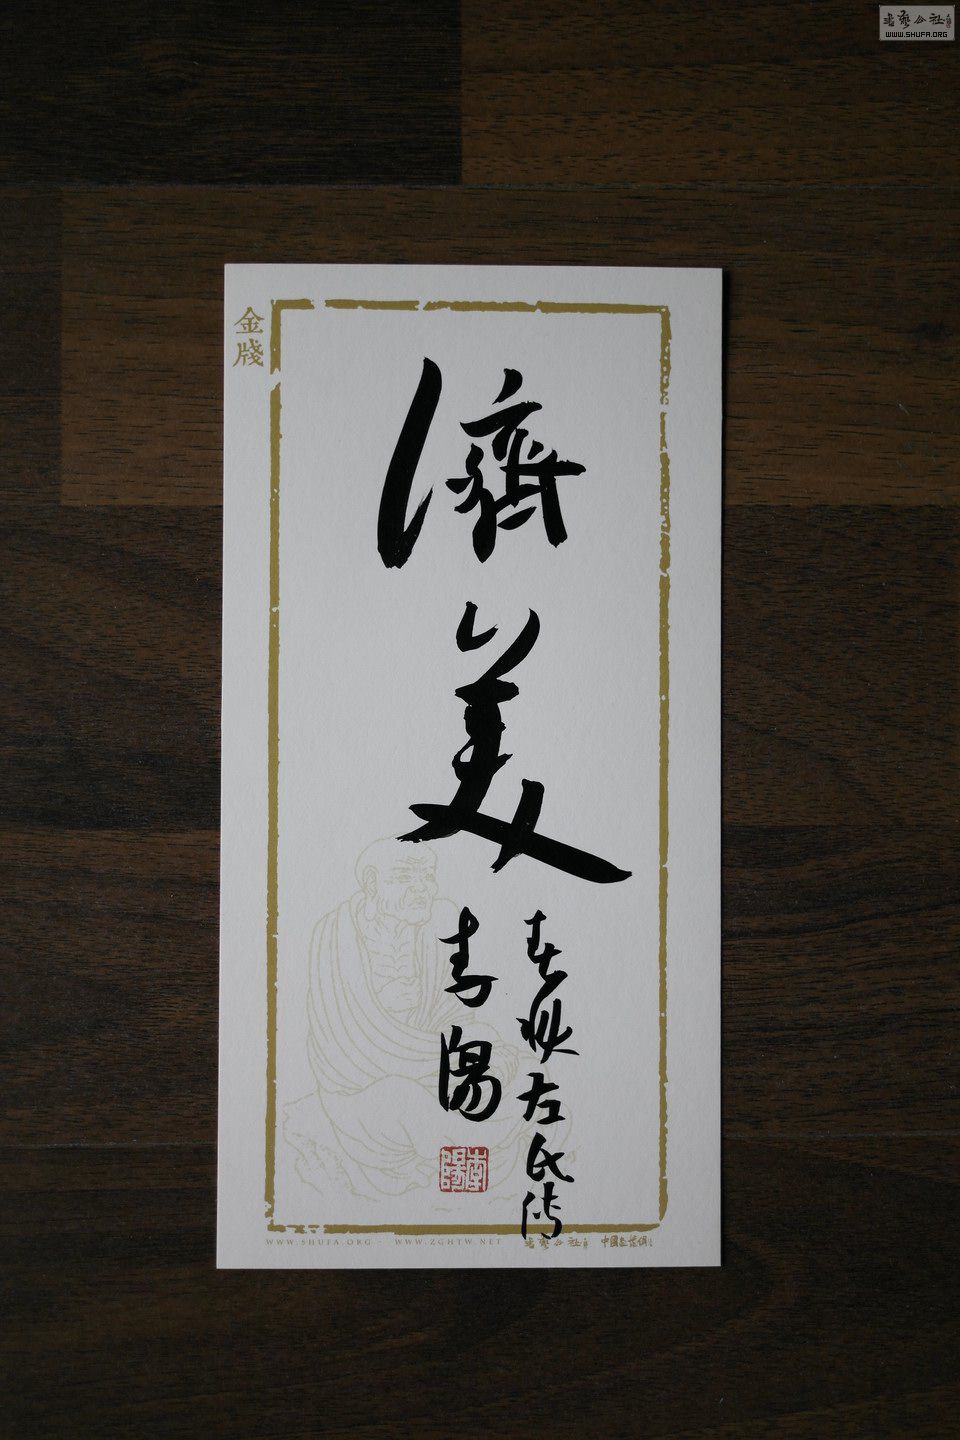 書藝公社
WWW.SHUFA.ORG
金牋
濟美
春秋左氏传
李陽
李陽
WWW.SHUFA.ORG - WWW.ZGHTW.NET 書藝公社